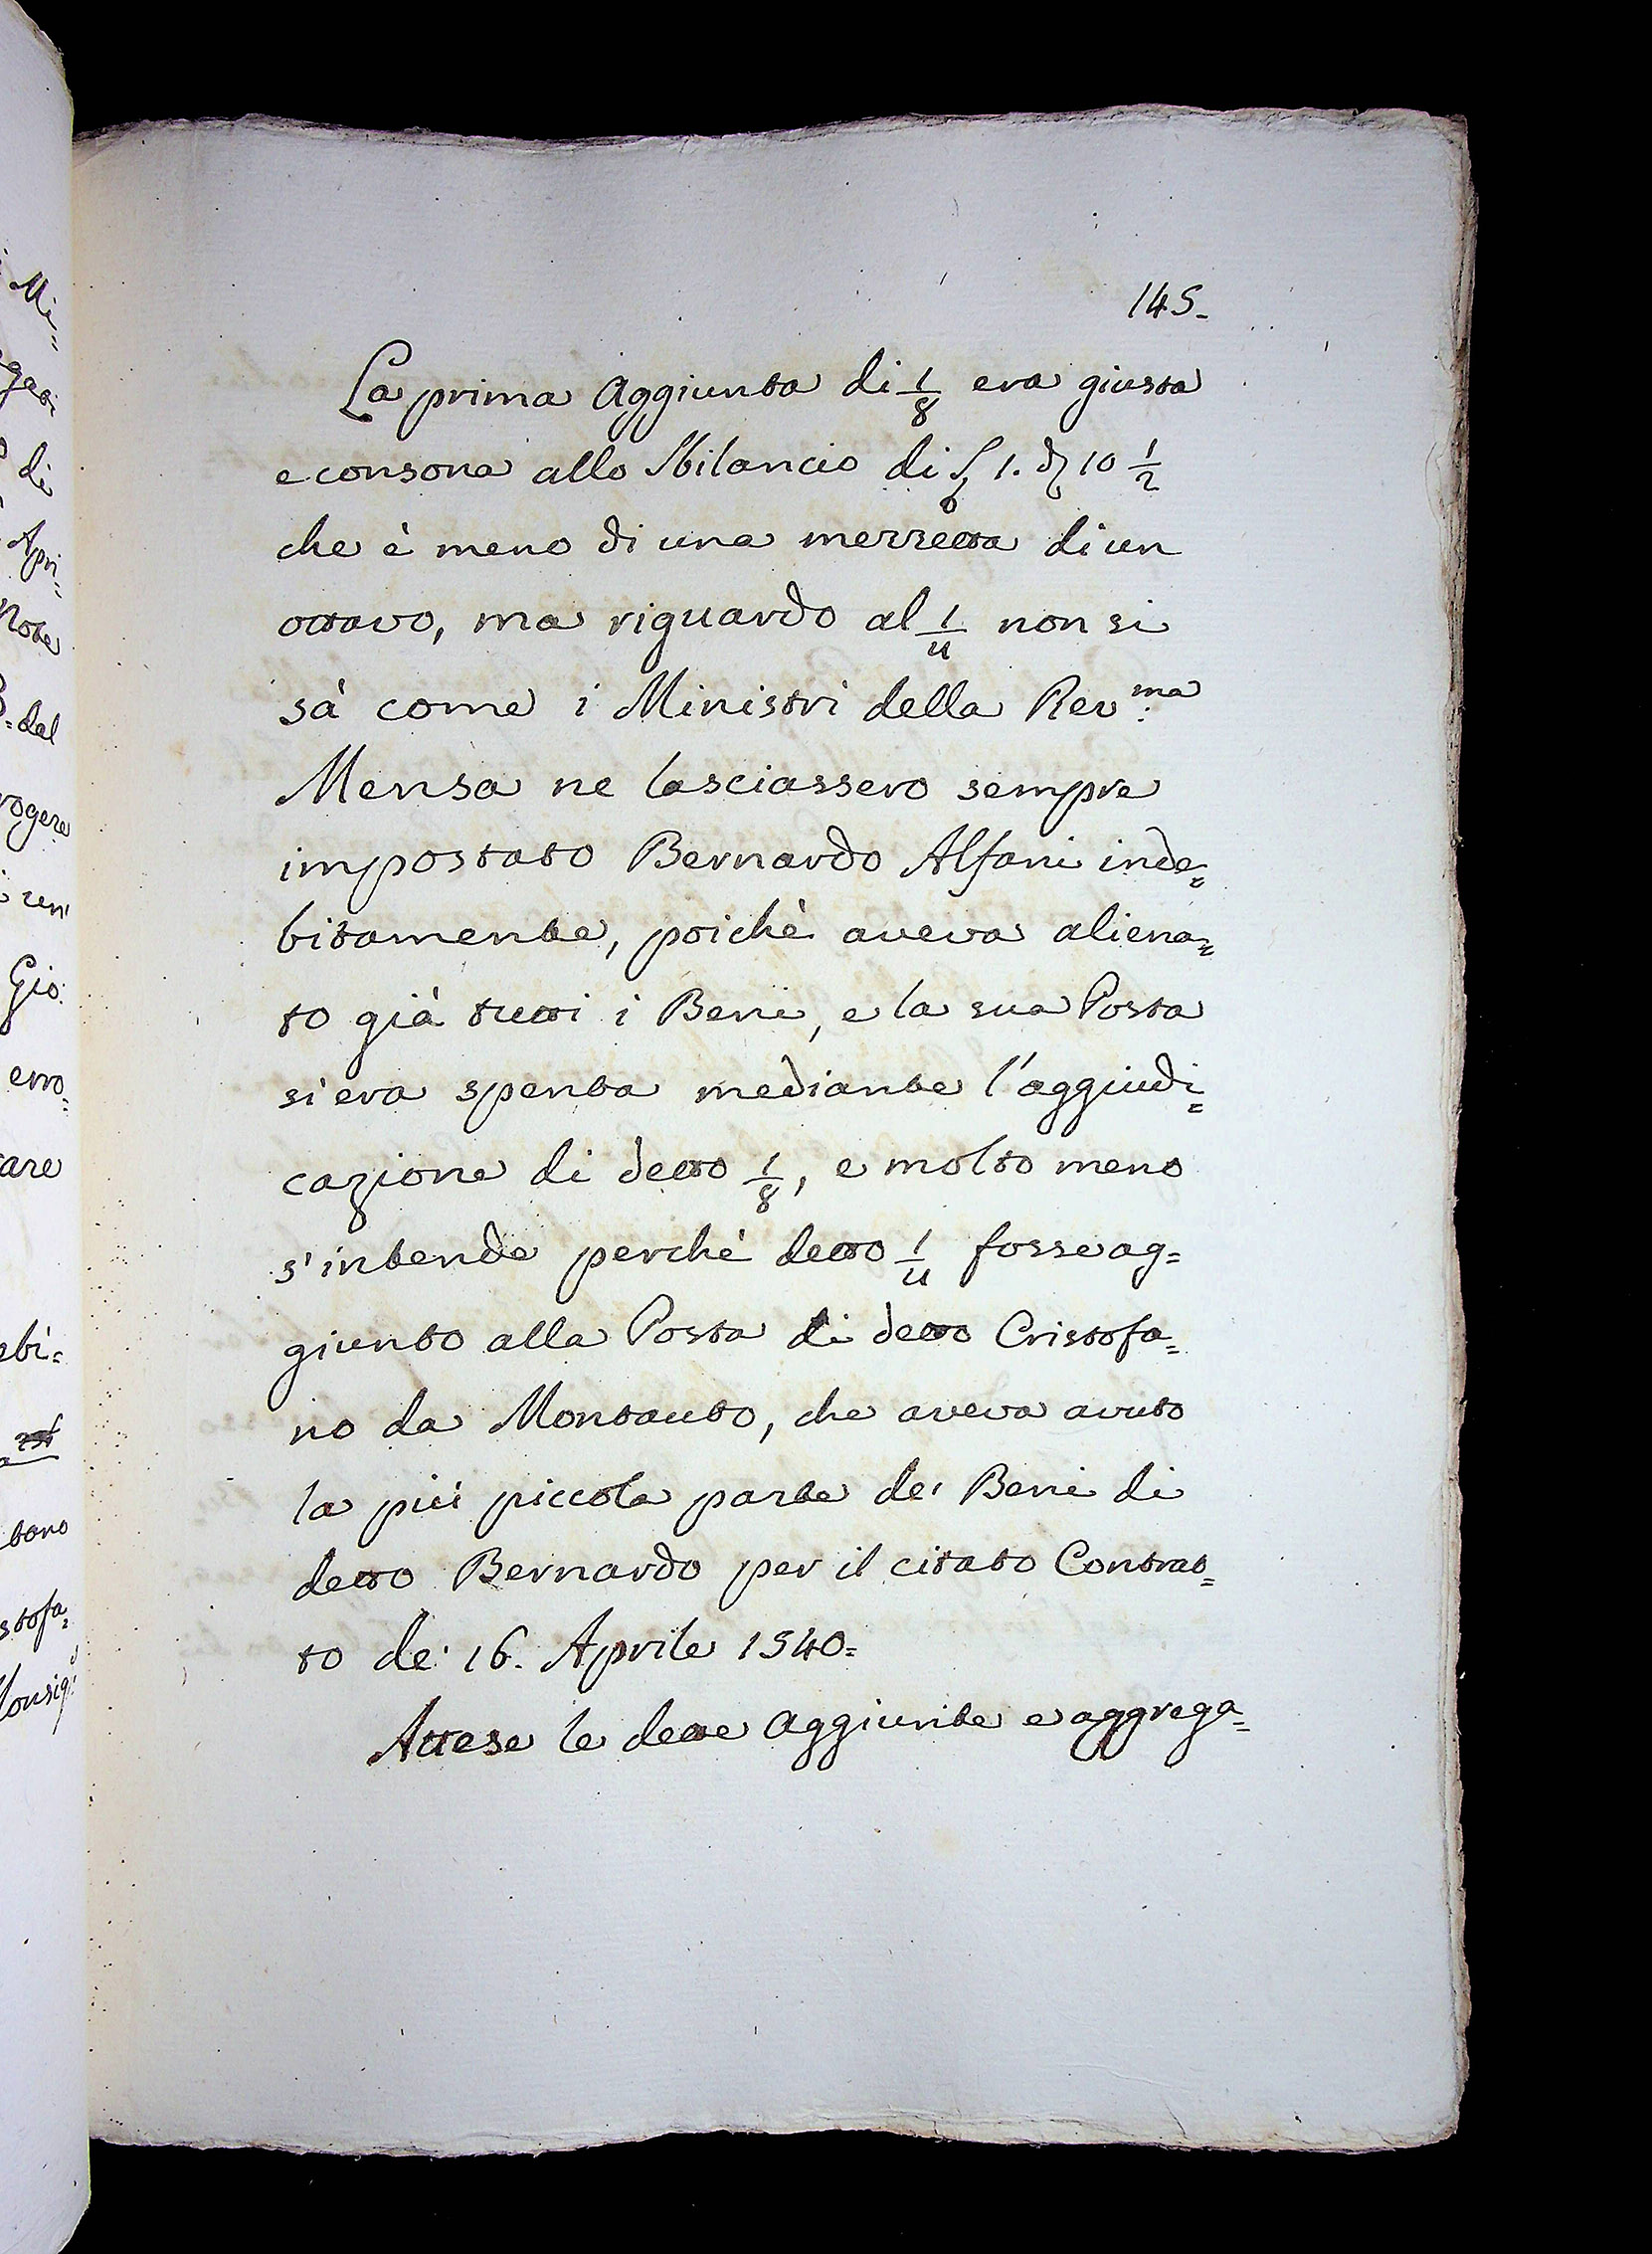 145.
La prima Aggiunta di 1/8 era giusta
e consona allo Sbilancio di 1. 10 1/2
che è meno di una mezzetta di un
ottavo, ma riguardo al 1/4 non si
sà come i Ministri della Rev:ma
Mensa ne lasciassero sempre
impostato Bernardo Alfani inde=
bitamente, poichè aveva aliena=
to già tutti i Beni, e la sua Posta
si era spenta mediante l'aggiudi=
cazione di detto 1/8, e molto meno
s'intende perchè detto 1/4 fosse ag=
giunto alla Posta di detto Cristofa=
no da Montauto, che aveva avuto
la più piccola parte de' Beni di
detto Bernardo per il citato Contrat=
to de' 16. Aprile 1540=
Attese le dette Aggiunte e aggrega=